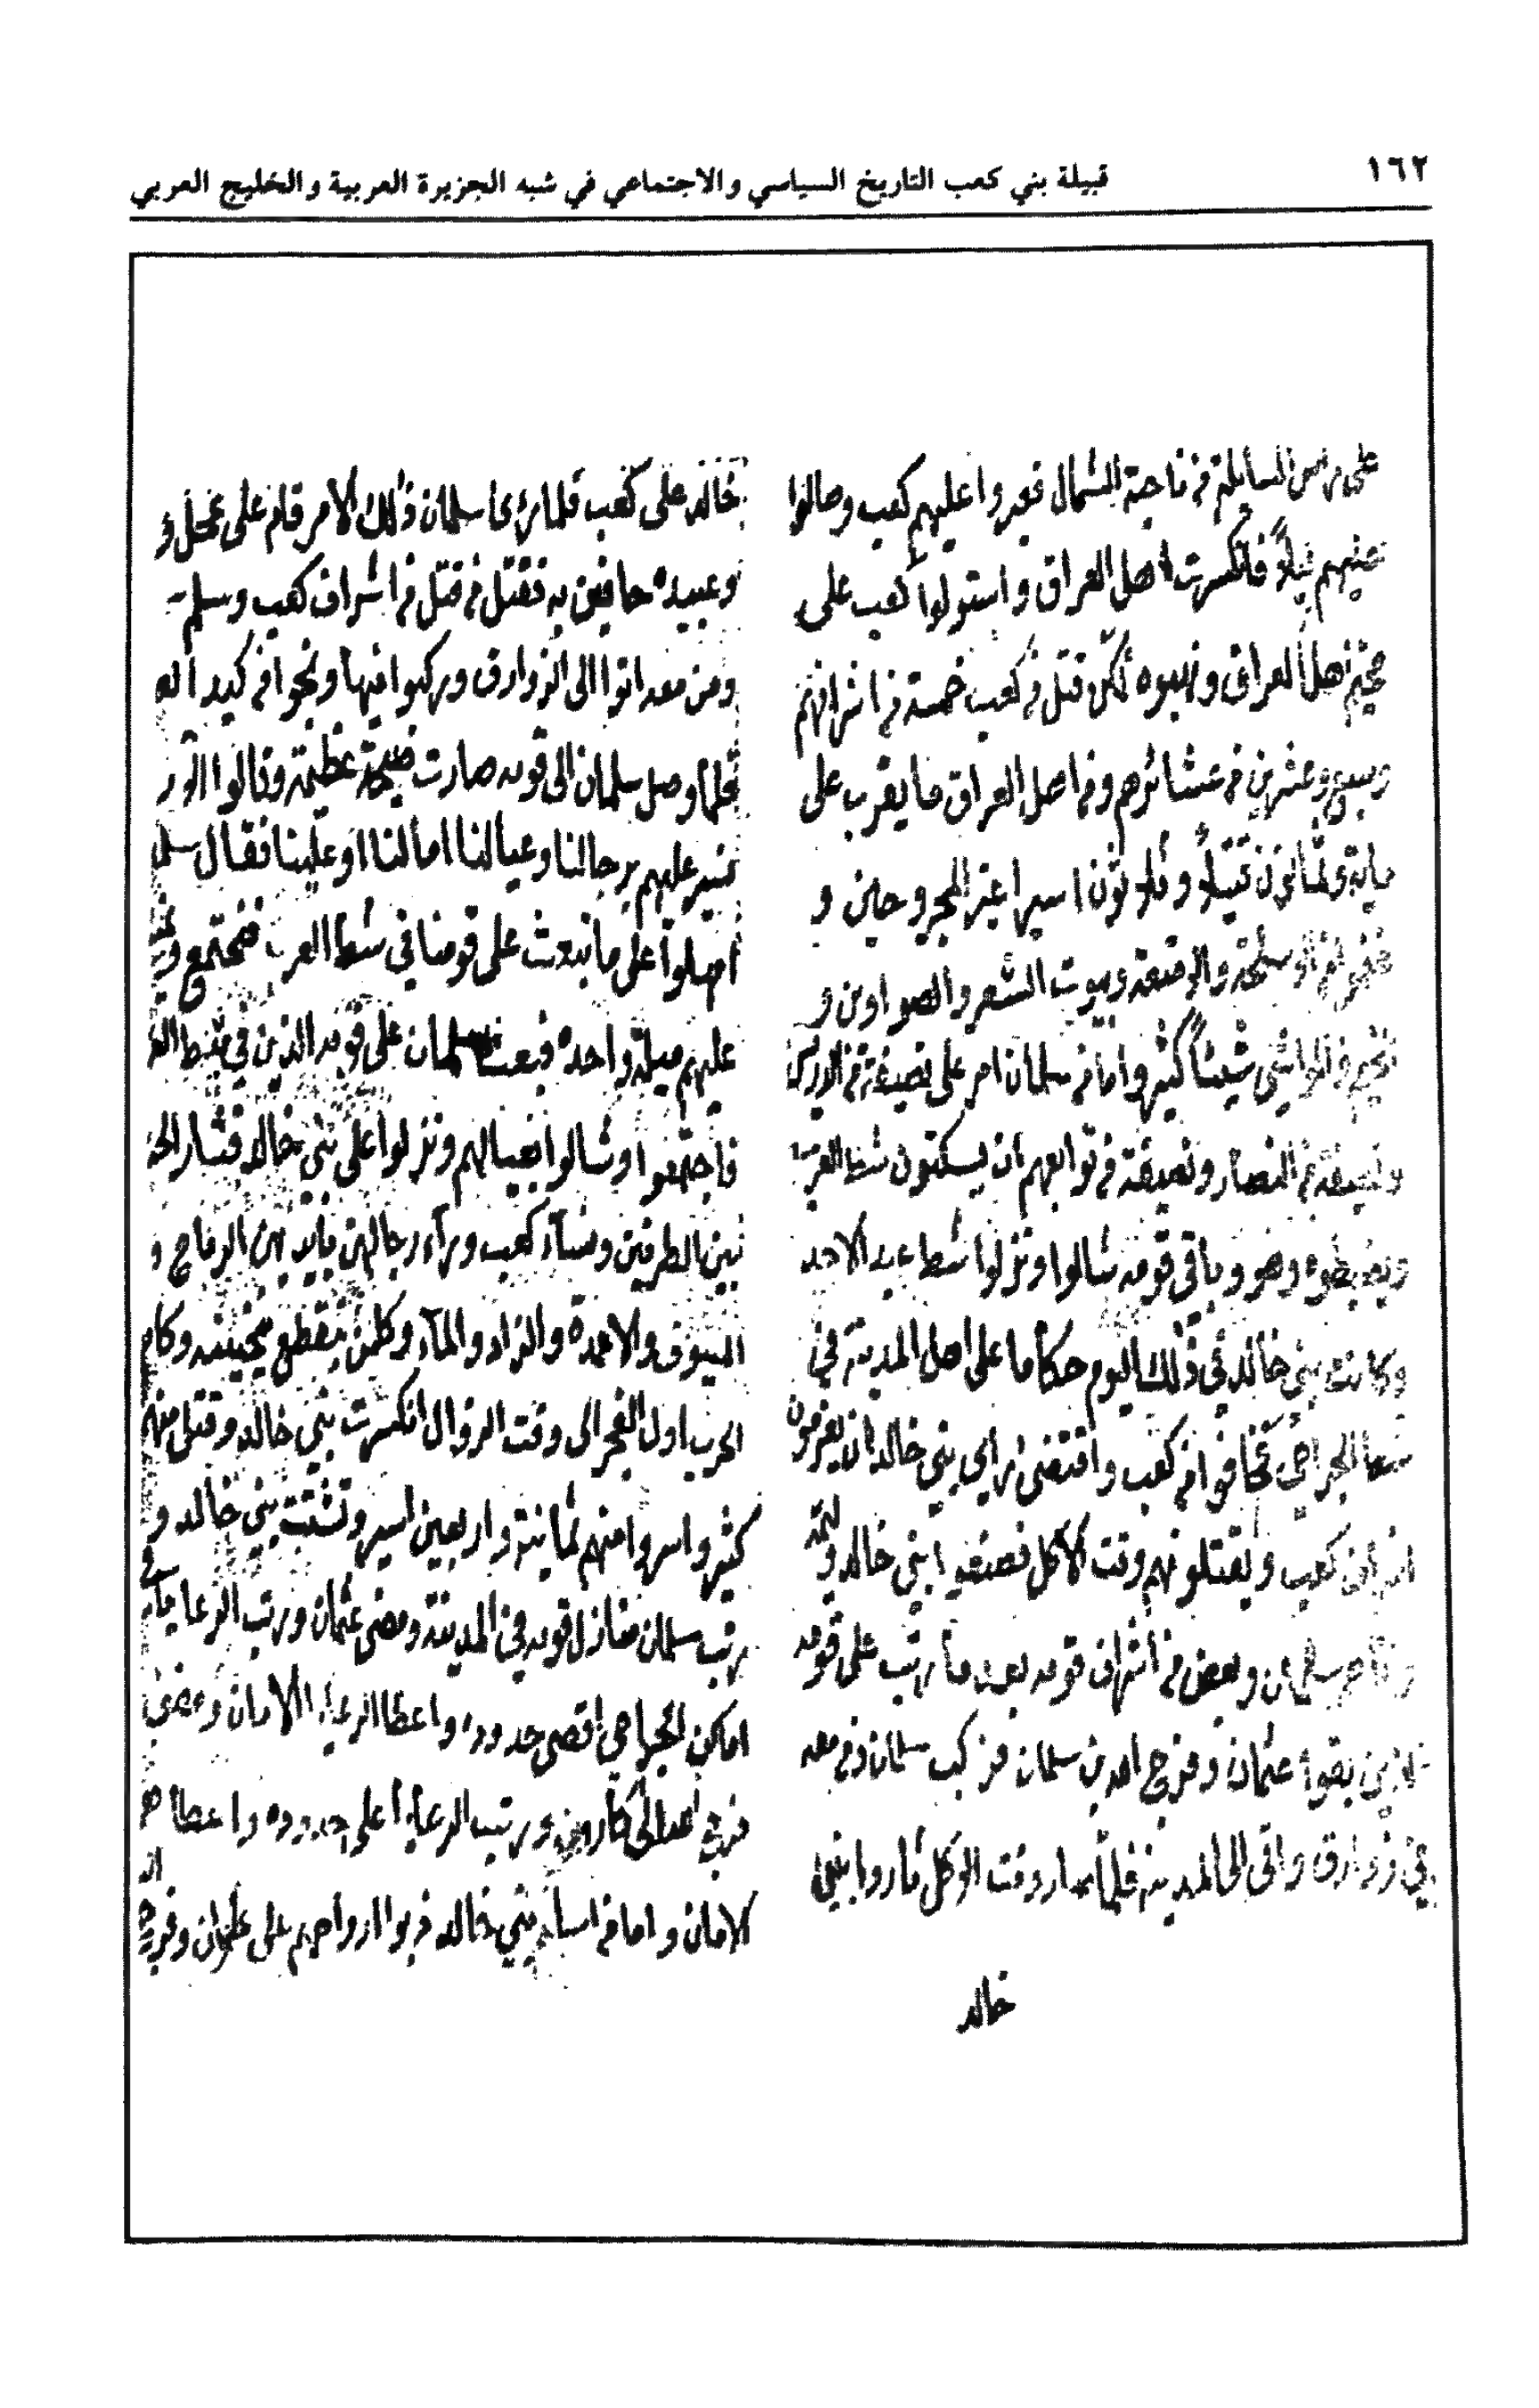 ١٦٢
قبيلة بني كعب التاريخ السياسي والاجتماعي في شبه الجزيرة العربية والخليج العربي
على راس السابلة من ناحية الشمال فغدروا عليهم كعب وصالوا
عليهم فانكسرت اهل العراق واستولوا كعب على
اهل العراق ونهبوه لكن قتل من كعب خمسة من اشرافهم
وسبع وعشرين من عشائرهم ومن اهل العراق ما يقرب على
ماية وثمانون قتيلاً وثلاثون اسيرا غير المجروحين و
والامتعة وبيوت الشعر والصواوين و
المواشي شيئاً كثير واما من سلمان امر على نصيفة من ادريس
ونصيفة من النصار ونصيفة من توابعهم ان يسكنون شط العرب
ويضبطوه وهو وباقي قومه شالوا ونزلوا شط عبد الاحد
وكانت بني خالد في ذلك اليوم حكاما على اهل المدينة في
شط الجراحي فخافوا من كعب واقتضى راي بني خالد ان يعزمون
اشراف كعب ويقتلونهم وقت الاكل فصنعوا بني خالد وليمة
سلمان وبعض من اشراف قومه بعد ما رتب على قومه
الذين بقوا عثمان وفرج الله بن سلمان فركب سلمان ومن معه
في زوارق واتى الى المدينة فلما صار وقت الاكل ثاروا بني
خالد
خالد على كعب فلما رءى سلمان ذلك الامر قام على عجل و
وعبيده حافين به فقتل من قتل من اشراف كعب وسلم
ومن معه اتوا الى الزوارق وركبوا فيها ونجوا من كيد
فلما وصل سلمان الى قومه صارت ضجة عظيمة وقالوا
نسير عليهم برجالنا وعيالنا اما لنا او علينا فقال
امهلوا على ما نبعث على قومنا في شط العرب فنجتمع
عليهم ميلة واحده فبعث سلمان على قومه الذين في شط
فاجتمعوا وشالوا بعيالهم ونزلوا على بني خالد فثار
بين الطرفين ونساء كعب وراء رجالهن بايديهن الرماح و
السيوف والاعمدة والزاد والماء وكلمن يقطع وكان
الحرب اول الفجر الى وقت الزوال انكسرت بني خالد وقتل منهم
كثير واسروا منهم ثمانية واربعين اسير وتشتت بني خالد و
رتب سلمان منازل قومه في المدينة ومضى عثمان ورتب الرعايا في
اماكن الجراحي اقصى حدوده واعطا الرعايا الامان ومضى
فرج الله الى كارون ورتب الرعايا على حدوده واعطاهم
الامان واما من اسارء بني خالد فربوا ارواحهم على